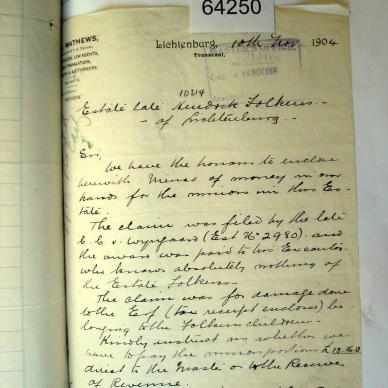 64250
MATHEWS,
LAW AGENTS,
& AUCTIONEERS.
Lichtenburg, 10th Nov 1904
Transvaal,
14 NOV 1904
1024
Estate late Hendrik Folkers
of Lichtenburg
Sir,
We have the honour to enclose
herewith of money in our
hands for the minors in this Es-
tate.
The claim was filed by the late
C. C. v. Wyngaard (Est No 2980) and
the award was paid to his Executor
who knows absolutely nothing of
the Estate Folkers.
The claim was for damage done
to the Erf (tax receipt enclosed) be-
longing to the Folkers children.
Kindly instruct us whether we
have to pay the minors portions £ 13.16.0
direct to the Master or to the Receiver
of Revenue.